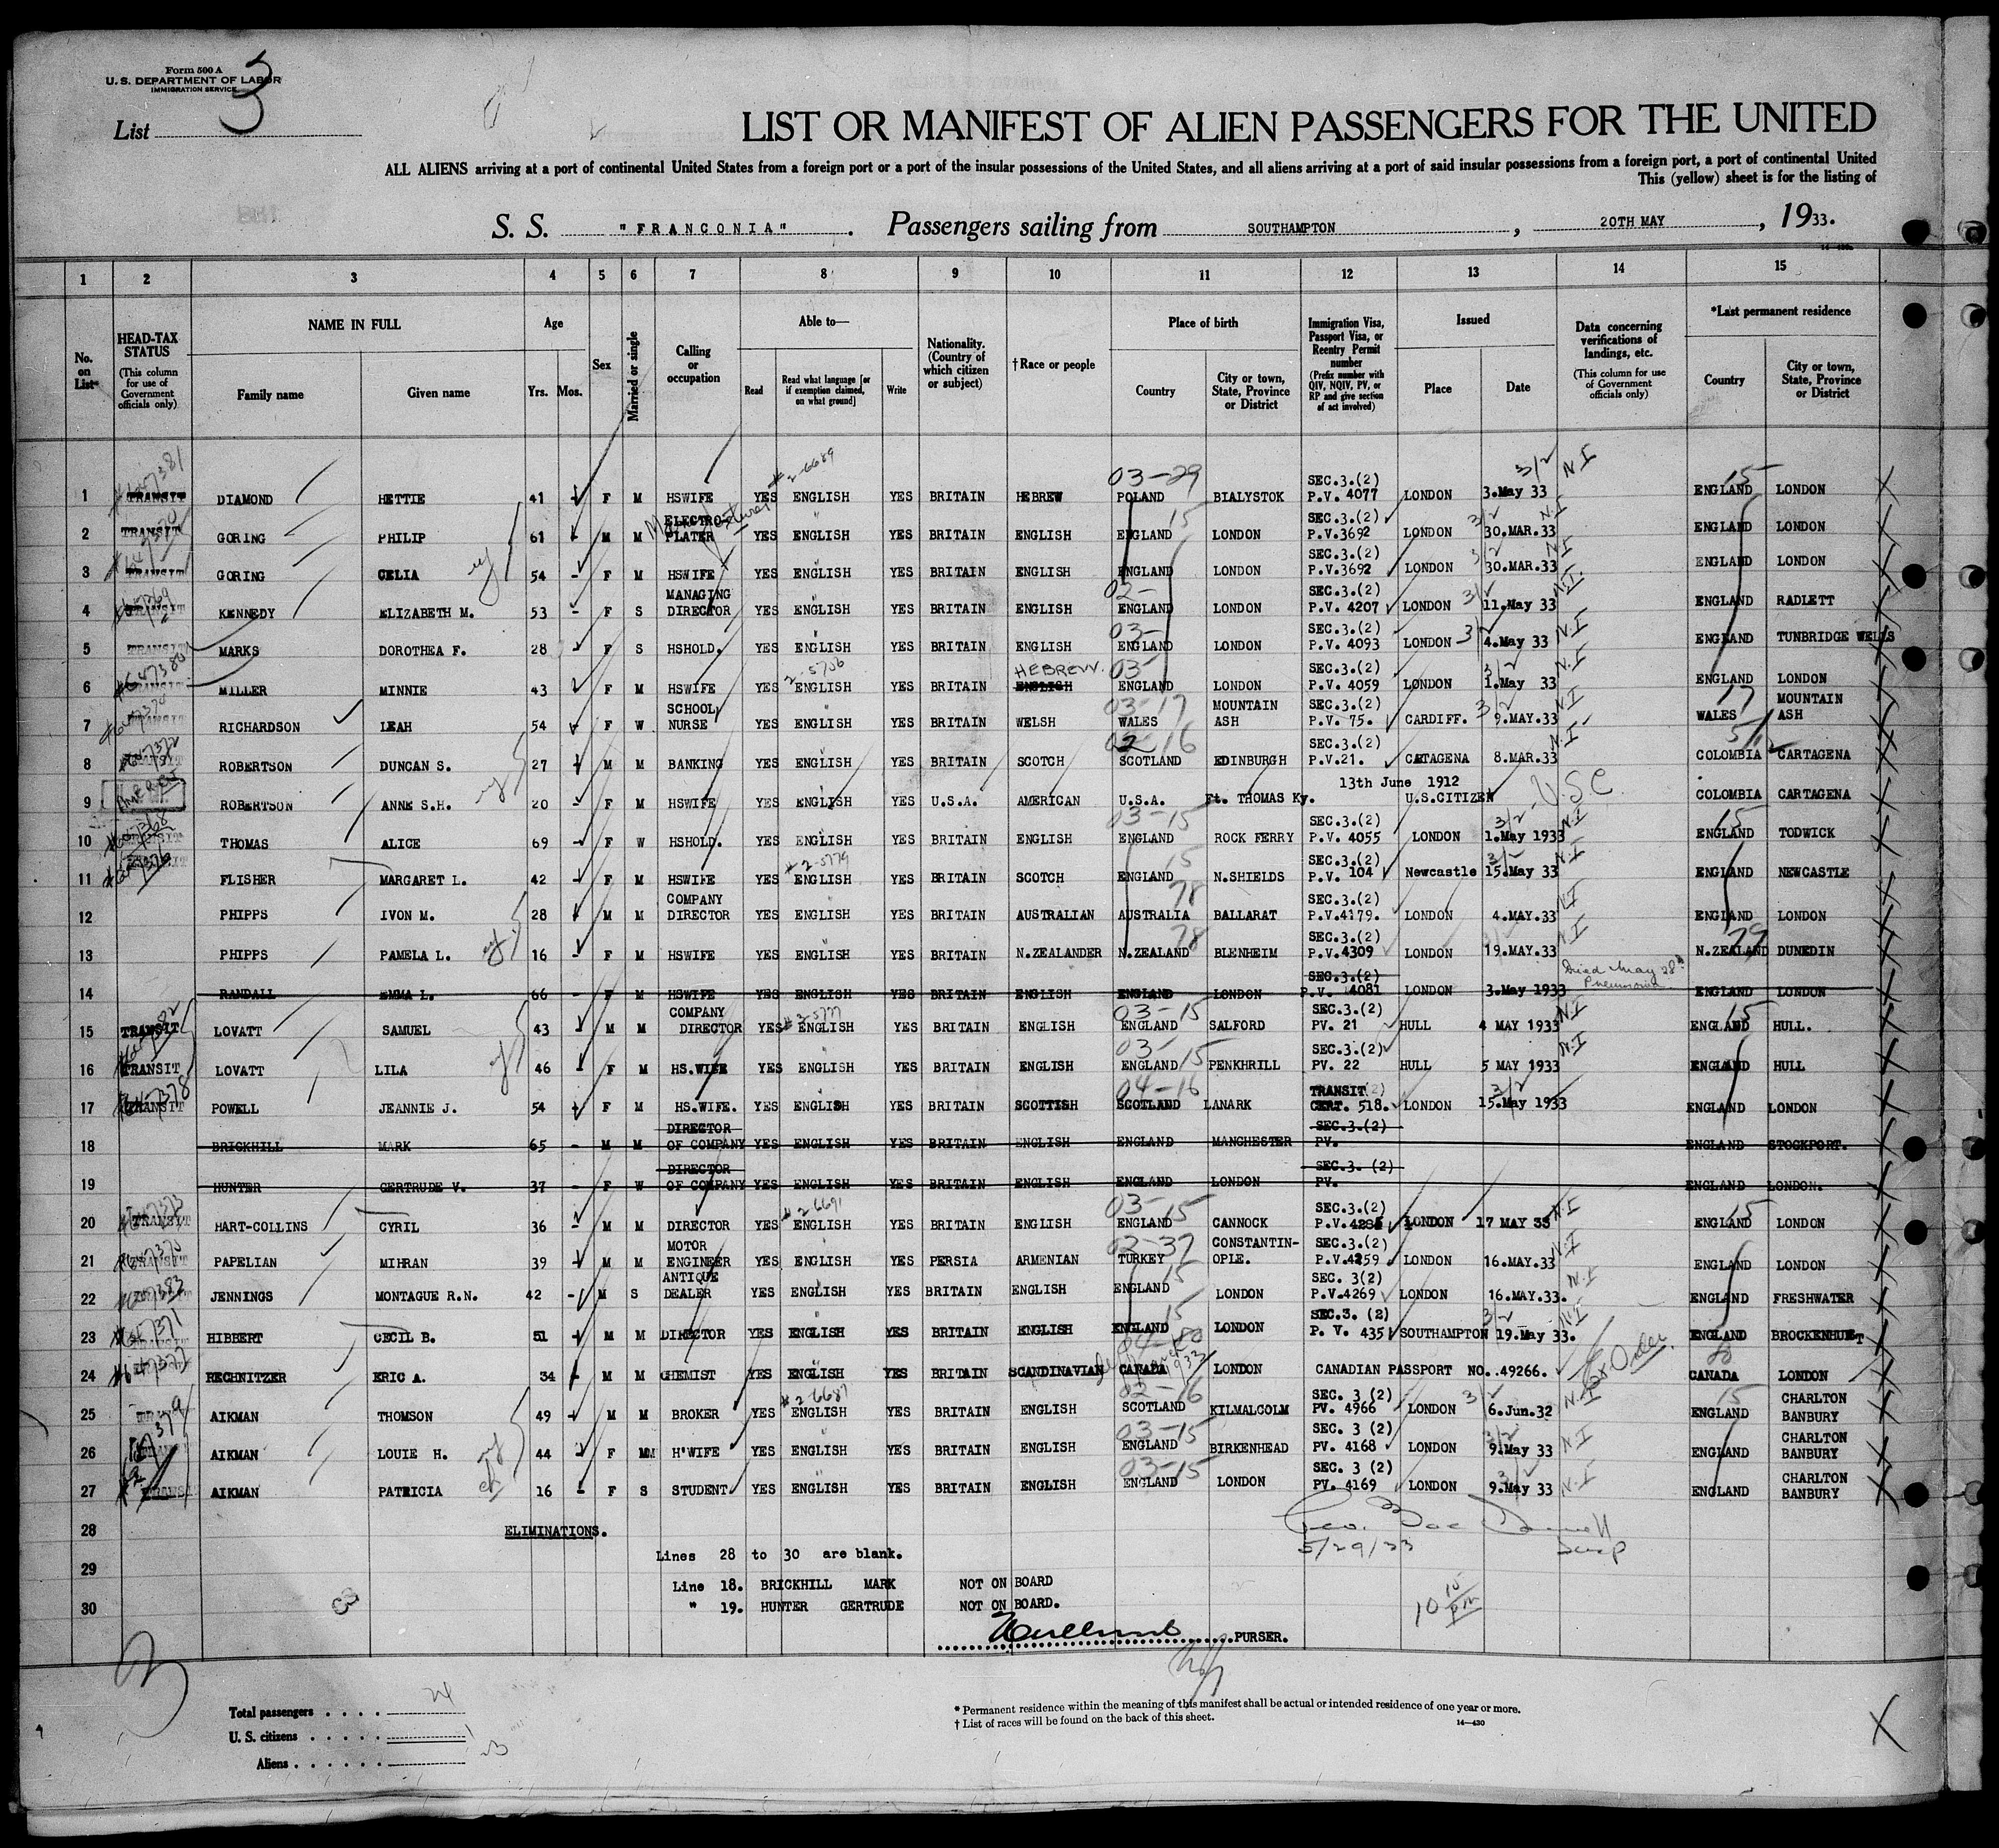 Form 500 A
U. S. DEPARTMENT OF LABOR
IMMIGRATION SERVICE
List 3
LIST OR MANIFEST OF ALIEN PASSENGERS FOR THE UNITED
ALL ALIENS arriving at a port of continental United States from a foreign port or a port of the insular possessions of the United States, and all aliens arriving at a port of said insular possessions from a foreign port, a port of continental United
This (yellow) sheet is for the listing of
S. S. "FRANCONIA". Passengers sailing from SOUTHAMPTON, 20TH MAY, 1933.
1 2 3 4 5 6 7 8 9 10 11 12 13 14 15
No. on List
HEAD-TAX STATUS (This column for use of Government officials only)
NAME IN FULL Family name Given name
Age Yrs. Mos.
Sex
Married or single
Calling or occupation
Able to— Read Read what language [or if exemption claimed, on what ground] Write
Nationality. (Country of which citizen or subject)
†Race or people
Place of birth Country City or town, State, Province or District
Immigration Visa, Passport Visa, or Reentry Permit number (Prefix number with QIV, NQIV, PV, or RP and give section of act involved)
Issued Place Date
Data concerning verifications of landings, etc. (This column for use of Government officials only)
*Last permanent residence Country City or town, State, Province or District
1 TRANSIT DIAMOND HETTIE 41 F M HSWIFE YES ENGLISH YES BRITAIN HEBREW 03-29 POLAND BIALYSTOK SEC.3.(2) P.V. 4077 LONDON 3.May 33 3/2 N.I 15 ENGLAND LONDON
2 TRANSIT GORING PHILIP 61 - M M ELECTRO-PLATER YES ENGLISH YES BRITAIN ENGLISH 15 ENGLAND LONDON SEC.3.(2) P.V.3692 LONDON 3/2 30.MAR.33 N.I ENGLAND LONDON
3 TRANSIT GORING CELIA 54 - F M HSWIFE YES ENGLISH YES BRITAIN ENGLISH ENGLAND LONDON SEC.3.(2) P.V.3692 LONDON 3/2 30.MAR.33 N.I ENGLAND LONDON
4 TRANSIT KENNEDY ELIZABETH M. 53 - F S MANAGING DIRECTOR YES ENGLISH YES BRITAIN ENGLISH 02- ENGLAND LONDON SEC.3.(2) P.V. 4207 LONDON 3/2 11.May 33 N.I. ENGLAND RADLETT
5 TRANSIT MARKS DOROTHEA F. 28 - F S HSHOLD. YES ENGLISH YES BRITAIN ENGLISH 03- ENGLAND LONDON SEC.3.(2) P.V. 4093 LONDON 3/2 4.May 33 N.I ENGLAND TUNBRIDGE WELLS
6 TRANSIT MILLER MINNIE 43 F M HSWIFE YES 2-5706 ENGLISH YES BRITAIN HEBREW. ENGLISH 03- ENGLAND LONDON SEC.3.(2) P.V. 4059 LONDON 3/2 1.May 33 N.I ENGLAND LONDON
7 TRANSIT RICHARDSON LEAH 54 F W SCHOOL NURSE YES ENGLISH YES BRITAIN WELSH 03-17 WALES MOUNTAIN ASH SEC.3.(2) P.V. 75. CARDIFF. 3/2 9.MAY.33 N.I 17 WALES MOUNTAIN ASH
8 ROBERTSON DUNCAN S. 27 M M BANKING YES ENGLISH YES BRITAIN SCOTCH 02-16 SCOTLAND EDINBURGH SEC.3.(2) P.V.21. CATAGENA 8.MAR.33 N.I COLOMBIA CARTAGENA
9 ROBERTSON ANNE S.H. 20 - F M HSWIFE YES ENGLISH YES U.S.A. AMERICAN U.S.A. Ft. THOMAS Ky. 13th June 1912 U.S.CITIZEN U.S.C. COLOMBIA CARTAGENA
10 THOMAS ALICE 69 F W HSHOLD. YES ENGLISH YES BRITAIN ENGLISH 03-15 ENGLAND ROCK FERRY SEC.3.(2) P.V. 4055 LONDON 3/2 1.May 1933 N.I 15 ENGLAND TODWICK
11 FLISHER MARGARET L. 42 - F M HSWIFE YES #2-5779 ENGLISH YES BRITAIN SCOTCH 15 ENGLAND N.SHIELDS SEC.3.(2) P.V. 104 Newcastle 3/2 15.May 33 N.I ENGLAND NEWCASTLE
12 PHIPPS IVON M. 28 M M COMPANY DIRECTOR YES ENGLISH YES BRITAIN AUSTRALIAN 78 AUSTRALIA BALLARAT SEC.3.(2) P.V.4179. LONDON 4.MAY.33 N.I ENGLAND LONDON
13 PHIPPS PAMELA L. 16 - F M HSWIFE YES ENGLISH YES BRITAIN N.ZEALANDER 78 N.ZEALAND BLENHEIM SEC.3.(2) P.V.4309 LONDON 19.MAY.33 N.I 79 N.ZEALAND DUNEDIN
14 RANDALL EMMA L. 66 - F M HSWIFE YES ENGLISH YES BRITAIN ENGLISH ENGLAND LONDON SEC.3.(2) P.V. 4081 LONDON 3.May 1933 Died May 28th Pneumonia ENGLAND LONDON
15 TRANSIT LOVATT SAMUEL 43 - M M COMPANY DIRECTOR YES #2-5777 ENGLISH YES BRITAIN ENGLISH 03-15 ENGLAND SALFORD SEC.3.(2) PV. 21 HULL 4 MAY 1933 N.I 15 ENGLAND HULL.
16 TRANSIT LOVATT LILA 46 - F M HS.WIFE YES ENGLISH YES BRITAIN ENGLISH 03-15 ENGLAND PENKHRILL SEC.3.(2) PV. 22 HULL 5 MAY 1933 N.I ENGLAND HULL
17 TRANSIT POWELL JEANNIE J. 54 F M HS.WIFE. YES ENGLISH YES BRITAIN SCOTTISH 04-16 SCOTLAND LANARK TRANSIT CERT. 518. LONDON 3/2 15.May 1933 ENGLAND LONDON
18 BRICKHILL MARK 65 - M M DIRECTOR OF COMPANY YES ENGLISH YES BRITAIN ENGLISH ENGLAND MANCHESTER SEC.3.(2) PV. ENGLAND STOCKPORT.
19 HUNTER GERTRUDE V. 37 - F W DIRECTOR OF COMPANY YES ENGLISH YES BRITAIN ENGLISH ENGLAND LONDON SEC.3. (2) PV. ENGLAND LONDON.
20 TRANSIT HART-COLLINS CYRIL 36 - M M DIRECTOR YES #2-6691 ENGLISH YES BRITAIN ENGLISH 03-15 ENGLAND CANNOCK SEC.3.(2) LONDON 17 MAY 33 N.I 15 ENGLAND LONDON
21 TRANSIT PAPELIAN MIHRAN 39 - M M MOTOR ENGINEER YES ENGLISH YES PERSIA ARMENIAN 02-37 TURKEY CONSTANTIN-OPLE. SEC.3.(2) P.V.4259 LONDON 16.MAY.33 N.I ENGLAND LONDON
22 JENNINGS MONTAGUE R.N. 42 - M S ANTIQUE DEALER YES ENGLISH YES BRITAIN ENGLISH 15 ENGLAND LONDON SEC. 3(2) P.V.4269 LONDON 16.MAY.33. N.I ENGLAND FRESHWATER
23 HIBBERT CECIL B. 51 M M DIRECTOR YES ENGLISH YES BRITAIN ENGLISH 15 ENGLAND LONDON SEC.3. (2) P. V. 435 SOUTHAMPTON 3/2 19.May 33. N.I ENGLAND BROCKENHURST
24 RECHNITZER ERIC A. 34 M M CHEMIST YES ENGLISH YES BRITAIN SCANDINAVIAN CANADA LONDON CANADIAN PASSPORT NO. 49266. Ex Order. CANADA LONDON
25 AIKMAN THOMSON 49 - M M BROKER YES #2-6687 ENGLISH YES BRITAIN ENGLISH 02-16 SCOTLAND KILMALCOLM SEC. 3 (2) PV. 4966 LONDON 3/2 6.Jun.32 N.I 15 ENGLAND CHARLTON BANBURY
26 AIKMAN LOUIE H. 44 F M H'WIFE YES ENGLISH YES BRITAIN ENGLISH 03-15 ENGLAND BIRKENHEAD SEC. 3 (2) PV. 4168 LONDON 3/2 9.May 33 N.I ENGLAND CHARLTON BANBURY
27 AIKMAN PATRICIA 16 - F S STUDENT YES ENGLISH YES BRITAIN ENGLISH 03-15 ENGLAND LONDON SEC. 3 (2) PV. 4169 LONDON 3/2 9.May 33 N.I ENGLAND CHARLTON BANBURY
28 ELIMINATIONS.
5/29/33
Lines 28 to 30 are blank.
29
Line 18. BRICKHILL MARK NOT ON BOARD
30 " 19. HUNTER GERTRUDE NOT ON BOARD.
10 15 PM
PURSER.
Total passengers 24
U. S. citizens 1
Aliens
* Permanent residence within the meaning of this manifest shall be actual or intended residence of one year or more.
† List of races will be found on the back of this sheet.
14—430